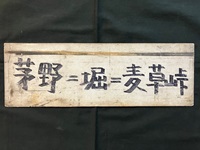 茅野=堀=麦草峠